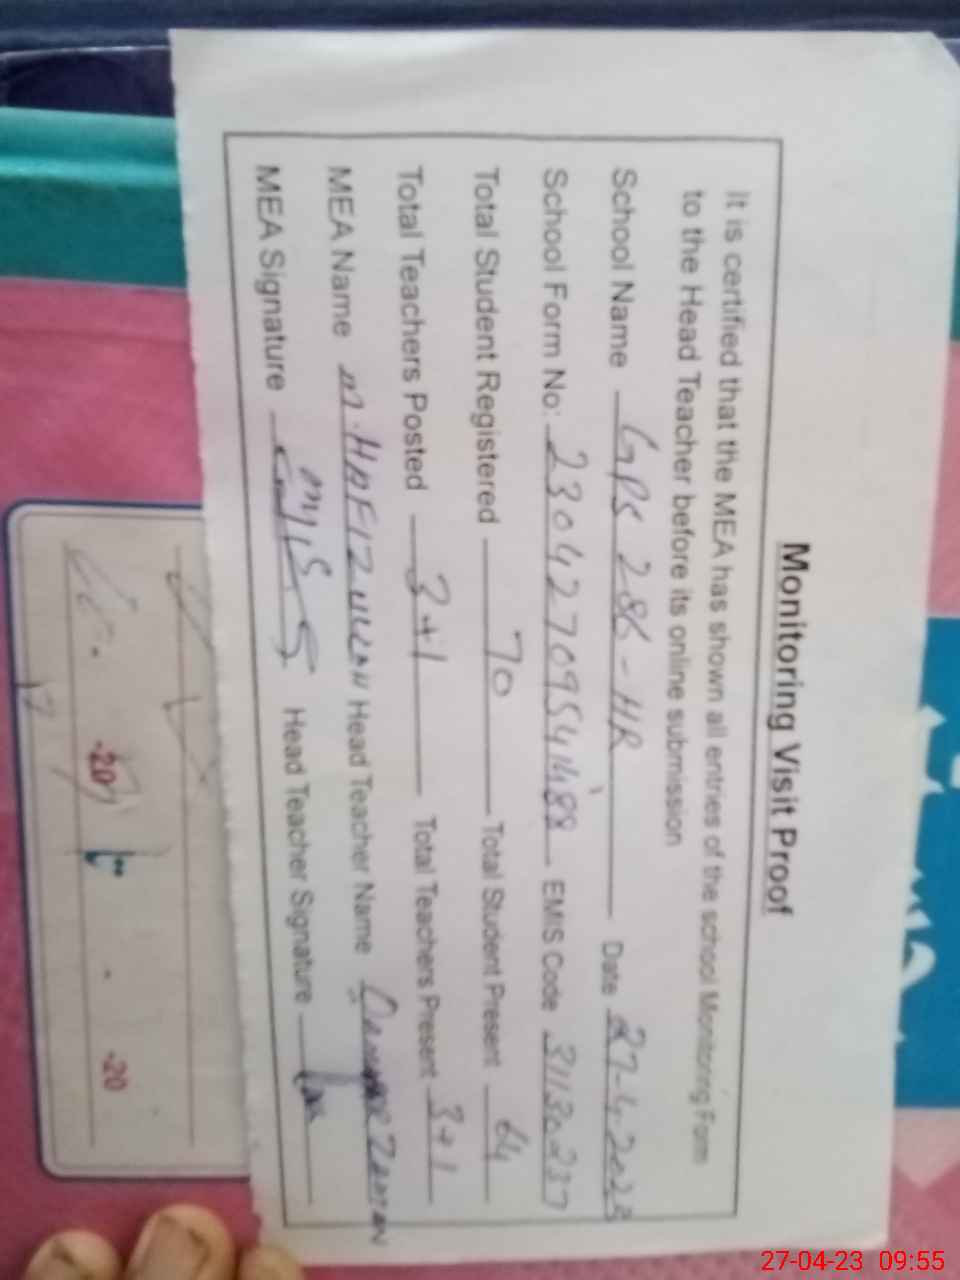 Monitoring Visit Proof
It is certified that the MEA has shown all entries of the school Monitoring Form
to the Head Teacher before its online submission
School Name GPS 286-HR Date 27-4-2023
School Form No: EMIS Code 31130237
Total Student Registered 70 Total Student Present 64
Total Teachers Posted 3+1 Total Teachers Present 3+1
MEA Name M. HAFIZ ULLAH Head Teacher Name ZAMAN
MEA Signature Head Teacher Signature
-20
-20
27-04-23 09:55